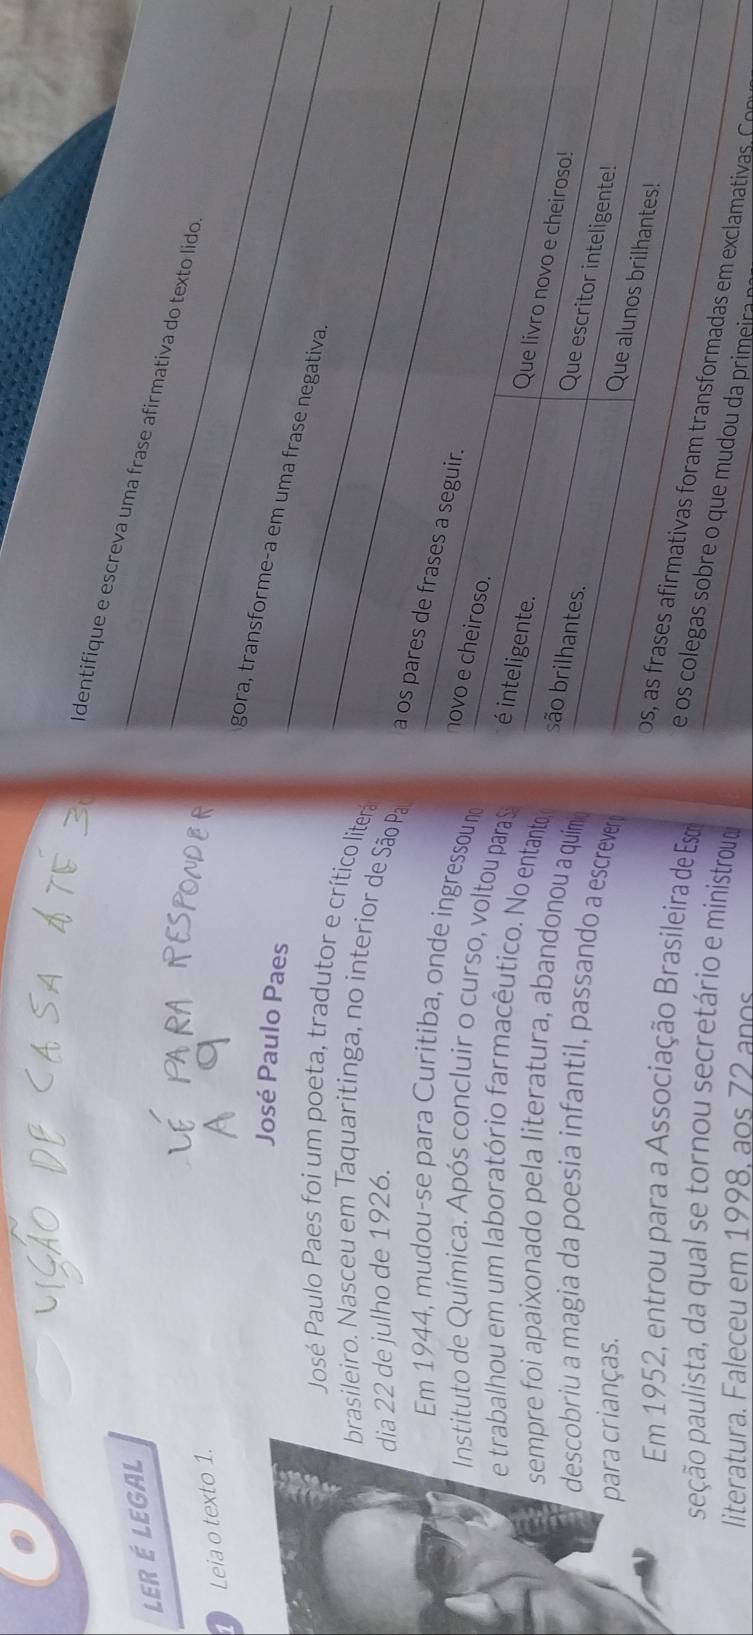 LIÇÃO DE CASA ATÉ
LÊ PARA RESPONDER
A 9
LER É LEGAL
1 Leia o texto 1.
José Paulo Paes
José Paulo Paes foi um poeta, tradutor e crítico literá
brasileiro. Nasceu em Taquaritinga, no interior de São Pa
dia 22 de julho de 1926.
Em 1944, mudou-se para Curitiba, onde ingressou no
Instituto de Química. Após concluir o curso, voltou para
e trabalhou em um laboratório farmacêutico. No entanto,
sempre foi apaixonado pela literatura, abandonou a quími
descobriu a magia da poesia infantil, passando a escrever
para crianças.
Em 1952, entrou para a Associação Brasileira de Escri
seção paulista, da qual se tornou secretário e ministrou
literatura. Faleceu em 1998, aos 72 anos
Identifique e escreva uma frase afirmativa do texto lido.
gora, transforme-a em uma frase negativa.
a os pares de frases a seguir.
novo e cheiroso. Que livro novo e cheiroso!
é inteligente. Que escritor inteligente!
são brilhantes. Que alunos brilhantes!
os, as frases afirmativas foram transformadas em exclamativas. Conv
e os colegas sobre o que mudou da primeira